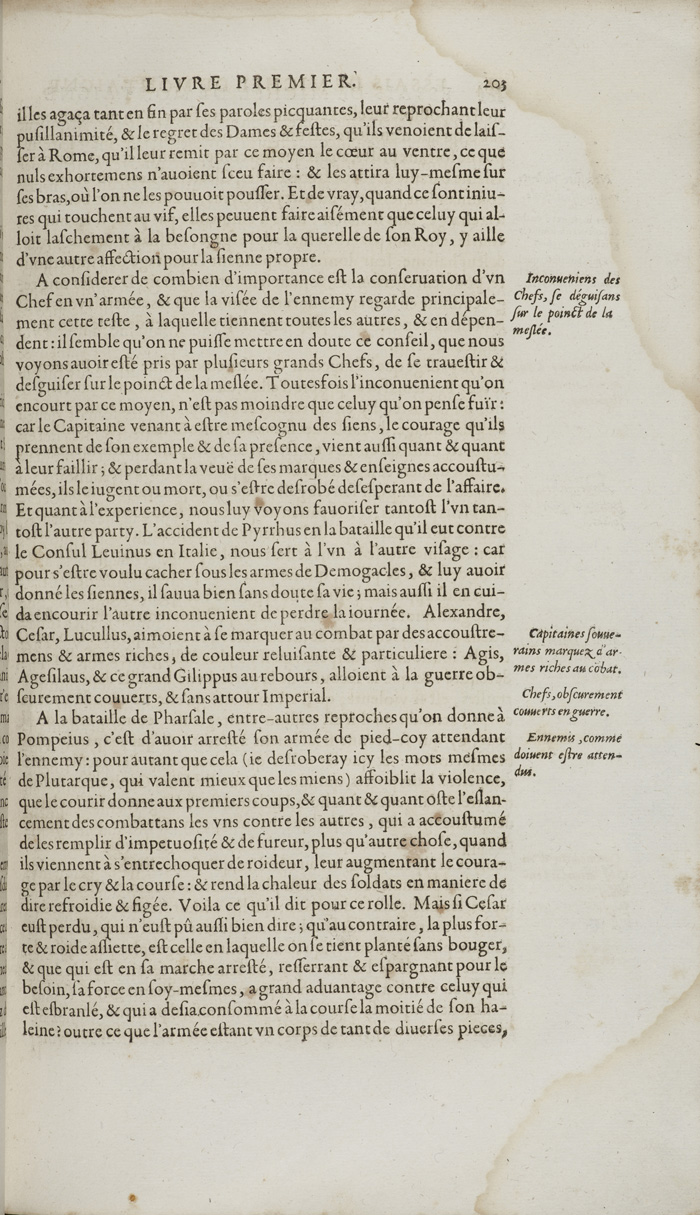 LIVRE PREMIER.
203
il les agaça tant en fin par ſes paroles picquantes, leur reprochant leur
puſillanimité, & le regret des Dames & feſtes, qu'ils venoient de laiſ-
ſer à Rome, qu'il leur remit par ce moyen le cœur au ventre, ce que
nuls exhortemens n'auoient ſceu faire : & les attira luy-meſme ſur
ſes bras, où l'on ne les pouuoit pouſſer. Et de vray, quand ce ſont iniu-
res qui touchent au vif, elles peuuent faire aiſément que celuy qui al-
loit laſchement à la beſongne pour la querelle de ſon Roy, y aille
d'vne autre affection pour la ſienne propre.
A conſiderer de combien d'importance eſt la conſeruation d'vn
Chef en vn'armée, & que la viſée de l'ennemy regarde principale-
ment cette teſte, à laquelle tiennent toutes les autres, & en dépen-
dent : il ſemble qu'on ne puiſſe mettre en doute ce conſeil, que nous
voyons auoir eſté pris par pluſieurs grands Chefs, de ſe traueſtir &
deſguiſer ſur le poinct de la meſlée. Toutesfois l'inconuenient qu'on
encourt par ce moyen, n'eſt pas moindre que celuy qu'on penſe fuïr :
car le Capitaine venant à eſtre meſcognu des ſiens, le courage qu'ils
prennent de ſon exemple & de ſa preſence, vient auſſi quant & quant
à leur faillir ; & perdant la veuë de ſes marques & enſeignes accouſtu-
mées, ils le iugent ou mort, ou s'eſtre deſrobé deſeſperant de l'affaire.
Et quant à l'experience, nous luy voyons fauoriſer tantoſt l'vn tan-
toſt l'autre party. L'accident de Pyrrhus en la bataille qu'il eut contre
le Conſul Leuinus en Italie, nous ſert à l'vn à l'autre viſage : car
pour s'eſtre voulu cacher ſous les armes de Demogacles, & luy auoir
donné les ſiennes, il ſauua bien ſans doute ſa vie ; mais auſſi il en cui-
da encourir l'autre inconuenient de perdre la iournée. Alexandre,
Ceſar, Lucullus, aimoient à ſe marquer au combat par des accouſtre-
mens & armes riches, de couleur reluiſante & particuliere : Agis,
Ageſilaus, & ce grand Gilippus au rebours, alloient à la guerre ob-
ſcurement couuerts, & ſans attour Imperial.
A la bataille de Pharſale, entre-autres reproches qu'on donne à
Pompeius, c'eſt d'auoir arreſté ſon armée de pied-coy attendant
l'ennemy : pour autant que cela (ie deſroberay icy les mots meſmes
de Plutarque, qui valent mieux que les miens) affoiblit la violence,
que le courir donne aux premiers coups, & quant & quant oſte l'eſlan-
cement des combattans les vns contre les autres, qui a accouſtumé
de les remplir d'impetuoſité & de fureur, plus qu'autre choſe, quand
ils viennent à s'entrechoquer de roideur, leur augmentant le coura-
ge par le cry & la courſe : & rend la chaleur des ſoldats en maniere de
dire refroidie & figée. Voila ce qu'il dit pour ce rolle. Mais ſi Ceſar
euſt perdu, qui n'euſt pû auſſi bien dire ; qu'au contraire, la plus for-
te & roide aſſiette, eſt celle en laquelle on ſe tient planté ſans bouger,
& que qui eſt en ſa marche arreſté, reſſerrant & eſpargnant pour le
beſoin, ſa force en ſoy-meſmes, a grand aduantage contre celuy qui
eſt eſbranlé, & qui a deſia conſommé à la courſe la moitié de ſon ha-
leine ? outre ce que l'armée eſtant vn corps de tant de diuerſes pieces,
Inconueniens des
Chefs, ſe déguiſans
ſur le poinct de la
meſlée.
Capitaines ſouue-
rains marquez d'ar-
mes riches au cōbat.
Chefs, obſcurement
couuerts en guerre.
Ennemis, comme
doiuent eſtre atten-
dus.